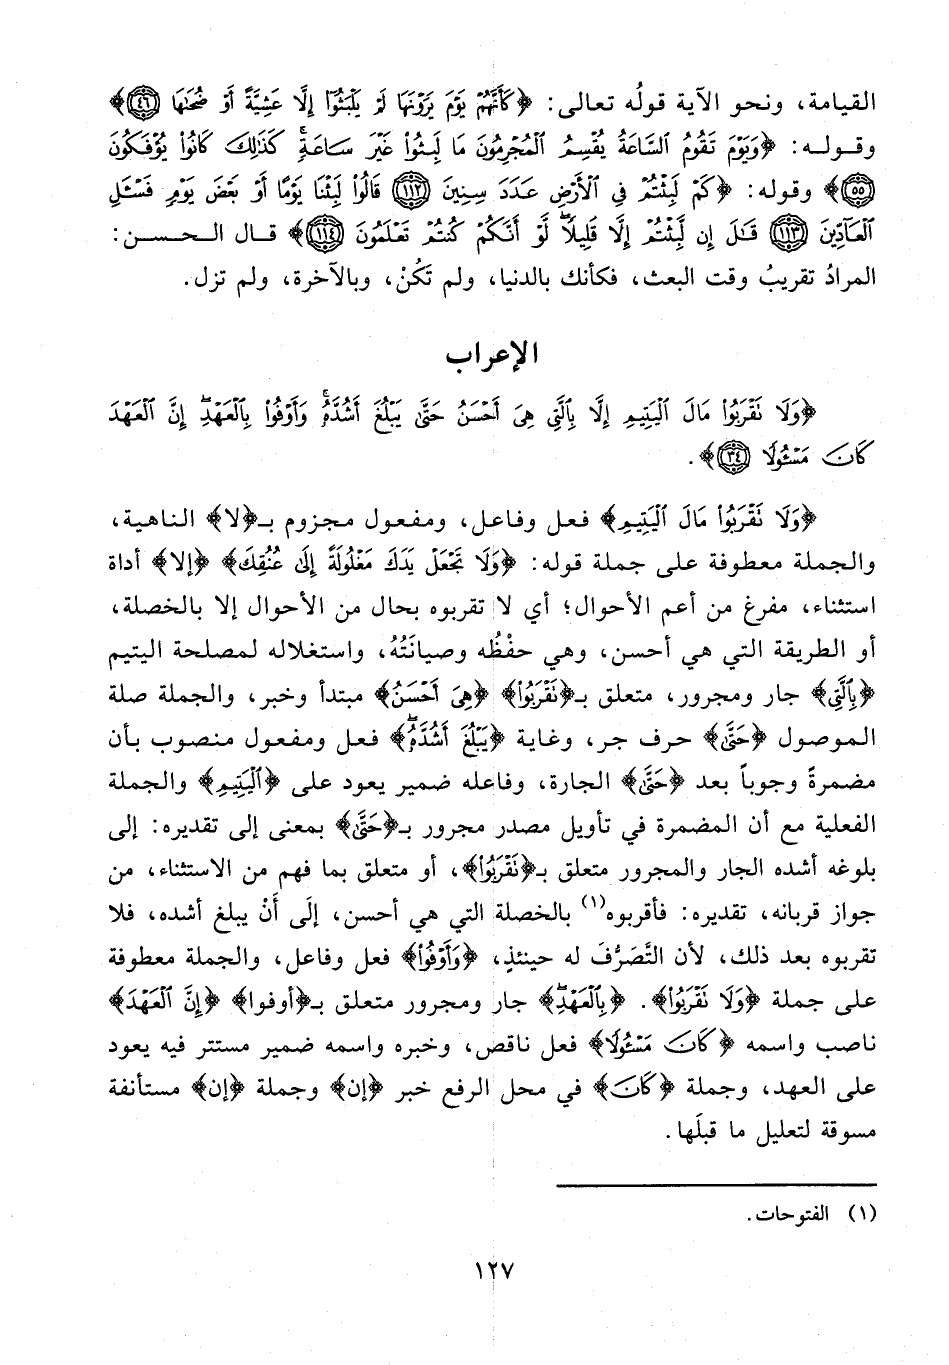 القيامة، ونحو الآية قولُه تعالى: ﴿كَأَنَّهُمْ يَوْمَ يَرَوْنَهَا لَمْ يَلْبَثُوٓا۟ إِلَّا عَشِيَّةً أَوْ ضُحَىٰهَا ﴿٤٦﴾﴾
وقـولـه: ﴿وَيَوْمَ تَقُومُ ٱلسَّاعَةُ يُقْسِمُ ٱلْمُجْرِمُونَ مَا لَبِثُوا۟ غَيْرَ سَاعَةٍۚ كَذَٰلِكَ كَانُوا۟ يُؤْفَكُونَ
﴿٥٥﴾﴾ وقوله: ﴿كَمْ لَبِثْتُمْ فِى ٱلْأَرْضِ عَدَدَ سِنِينَ ﴿١١٢﴾ قَالُوا۟ لَبِثْنَا يَوْمًا أَوْ بَعْضَ يَوْمٍ فَسْـَٔلِ
ٱلْعَآدِّينَ ﴿١١٣﴾ قَـٰلَ إِن لَّبِثْتُمْ إِلَّا قَلِيلًاۖ لَّوْ أَنَّكُمْ كُنتُمْ تَعْلَمُونَ ﴿١١٤﴾﴾ قـال الـحـسـن:
المرادُ تقريبُ وقت البعث، فكأنك بالدنيا، ولم تَكُنْ، وبالآخرة، ولم تزل.
الإعراب
﴿وَلَا تَقْرَبُوا۟ مَالَ ٱلْيَتِيمِ إِلَّا بِٱلَّتِى هِىَ أَحْسَنُ حَتَّىٰ يَبْلُغَ أَشُدَّهُۥۚ وَأَوْفُوا۟ بِٱلْعَهْدِۖ إِنَّ ٱلْعَهْدَ
كَانَ مَسْـُٔولًا ﴿٣٤﴾﴾.
﴿وَلَا تَقْرَبُوا۟ مَالَ ٱلْيَتِيمِ﴾ فعل وفاعل، ومفعول مجزوم بـ﴿لا﴾ الناهية،
والجملة معطوفة على جملة قوله: ﴿وَلَا تَجْعَلْ يَدَكَ مَغْلُولَةً إِلَىٰ عُنُقِكَ﴾ ﴿إلا﴾ أداة
استثناء، مفرغ من أعم الأحوال؛ أي لا تقربوه بحال من الأحوال إلا بالخصلة،
أو الطريقة التي هي أحسن، وهي حفْظُه وصيانَتُهُ، واستغلاله لمصلحة اليتيم
﴿بِٱلَّتِى﴾ جار ومجرور، متعلق بـ﴿تَقْرَبُوا۟﴾ ﴿هِىَ أَحْسَنُ﴾ مبتدأ وخبر، والجملة صلة
الموصول ﴿حَتَّىٰ﴾ حرف جر، وغاية ﴿يَبْلُغَ أَشُدَّهُۥۖ﴾ فعل ومفعول منصوب بأن
مضمرةً وجوباً بعد ﴿حَتَّىٰ﴾ الجارة، وفاعله ضمير يعود على ﴿ٱلْيَتِيمِ﴾ والجملة
الفعلية مع أن المضمرة في تأويل مصدر مجرور بـ﴿حَتَّىٰ﴾ بمعنى إلى تقديره: إلى
بلوغه أشده الجار والمجرور متعلق بـ﴿تَقْرَبُوا۟﴾، أو متعلق بما فهم من الاستثناء، من
جواز قربانه، تقديره: فأقربوه(١) بالخصلة التي هي أحسن، إلَى أَنْ يبلغ أشده، فلا
تقربوه بعد ذلك، لأن التَّصَرُّفَ له حينئذٍ، ﴿وَأَوْفُوا۟﴾ فعل وفاعل، والجملة معطوفة
على جملة ﴿وَلَا تَقْرَبُوا۟﴾. ﴿بِٱلْعَهْدِۖ﴾ جار ومجرور متعلق بـ﴿أوفوا﴾ ﴿إِنَّ ٱلْعَهْدَ﴾
ناصب واسمه ﴿كَانَ مَسْـُٔولًا﴾ فعل ناقص، وخبره واسمه ضمير مستتر فيه يعود
على العهد، وجملة ﴿كَانَ﴾ في محل الرفع خبر ﴿إن﴾ وجملة ﴿إن﴾ مستأنفة
مسوقة لتعليل ما قبلَها.
(١) الفتوحات.
١٢٧